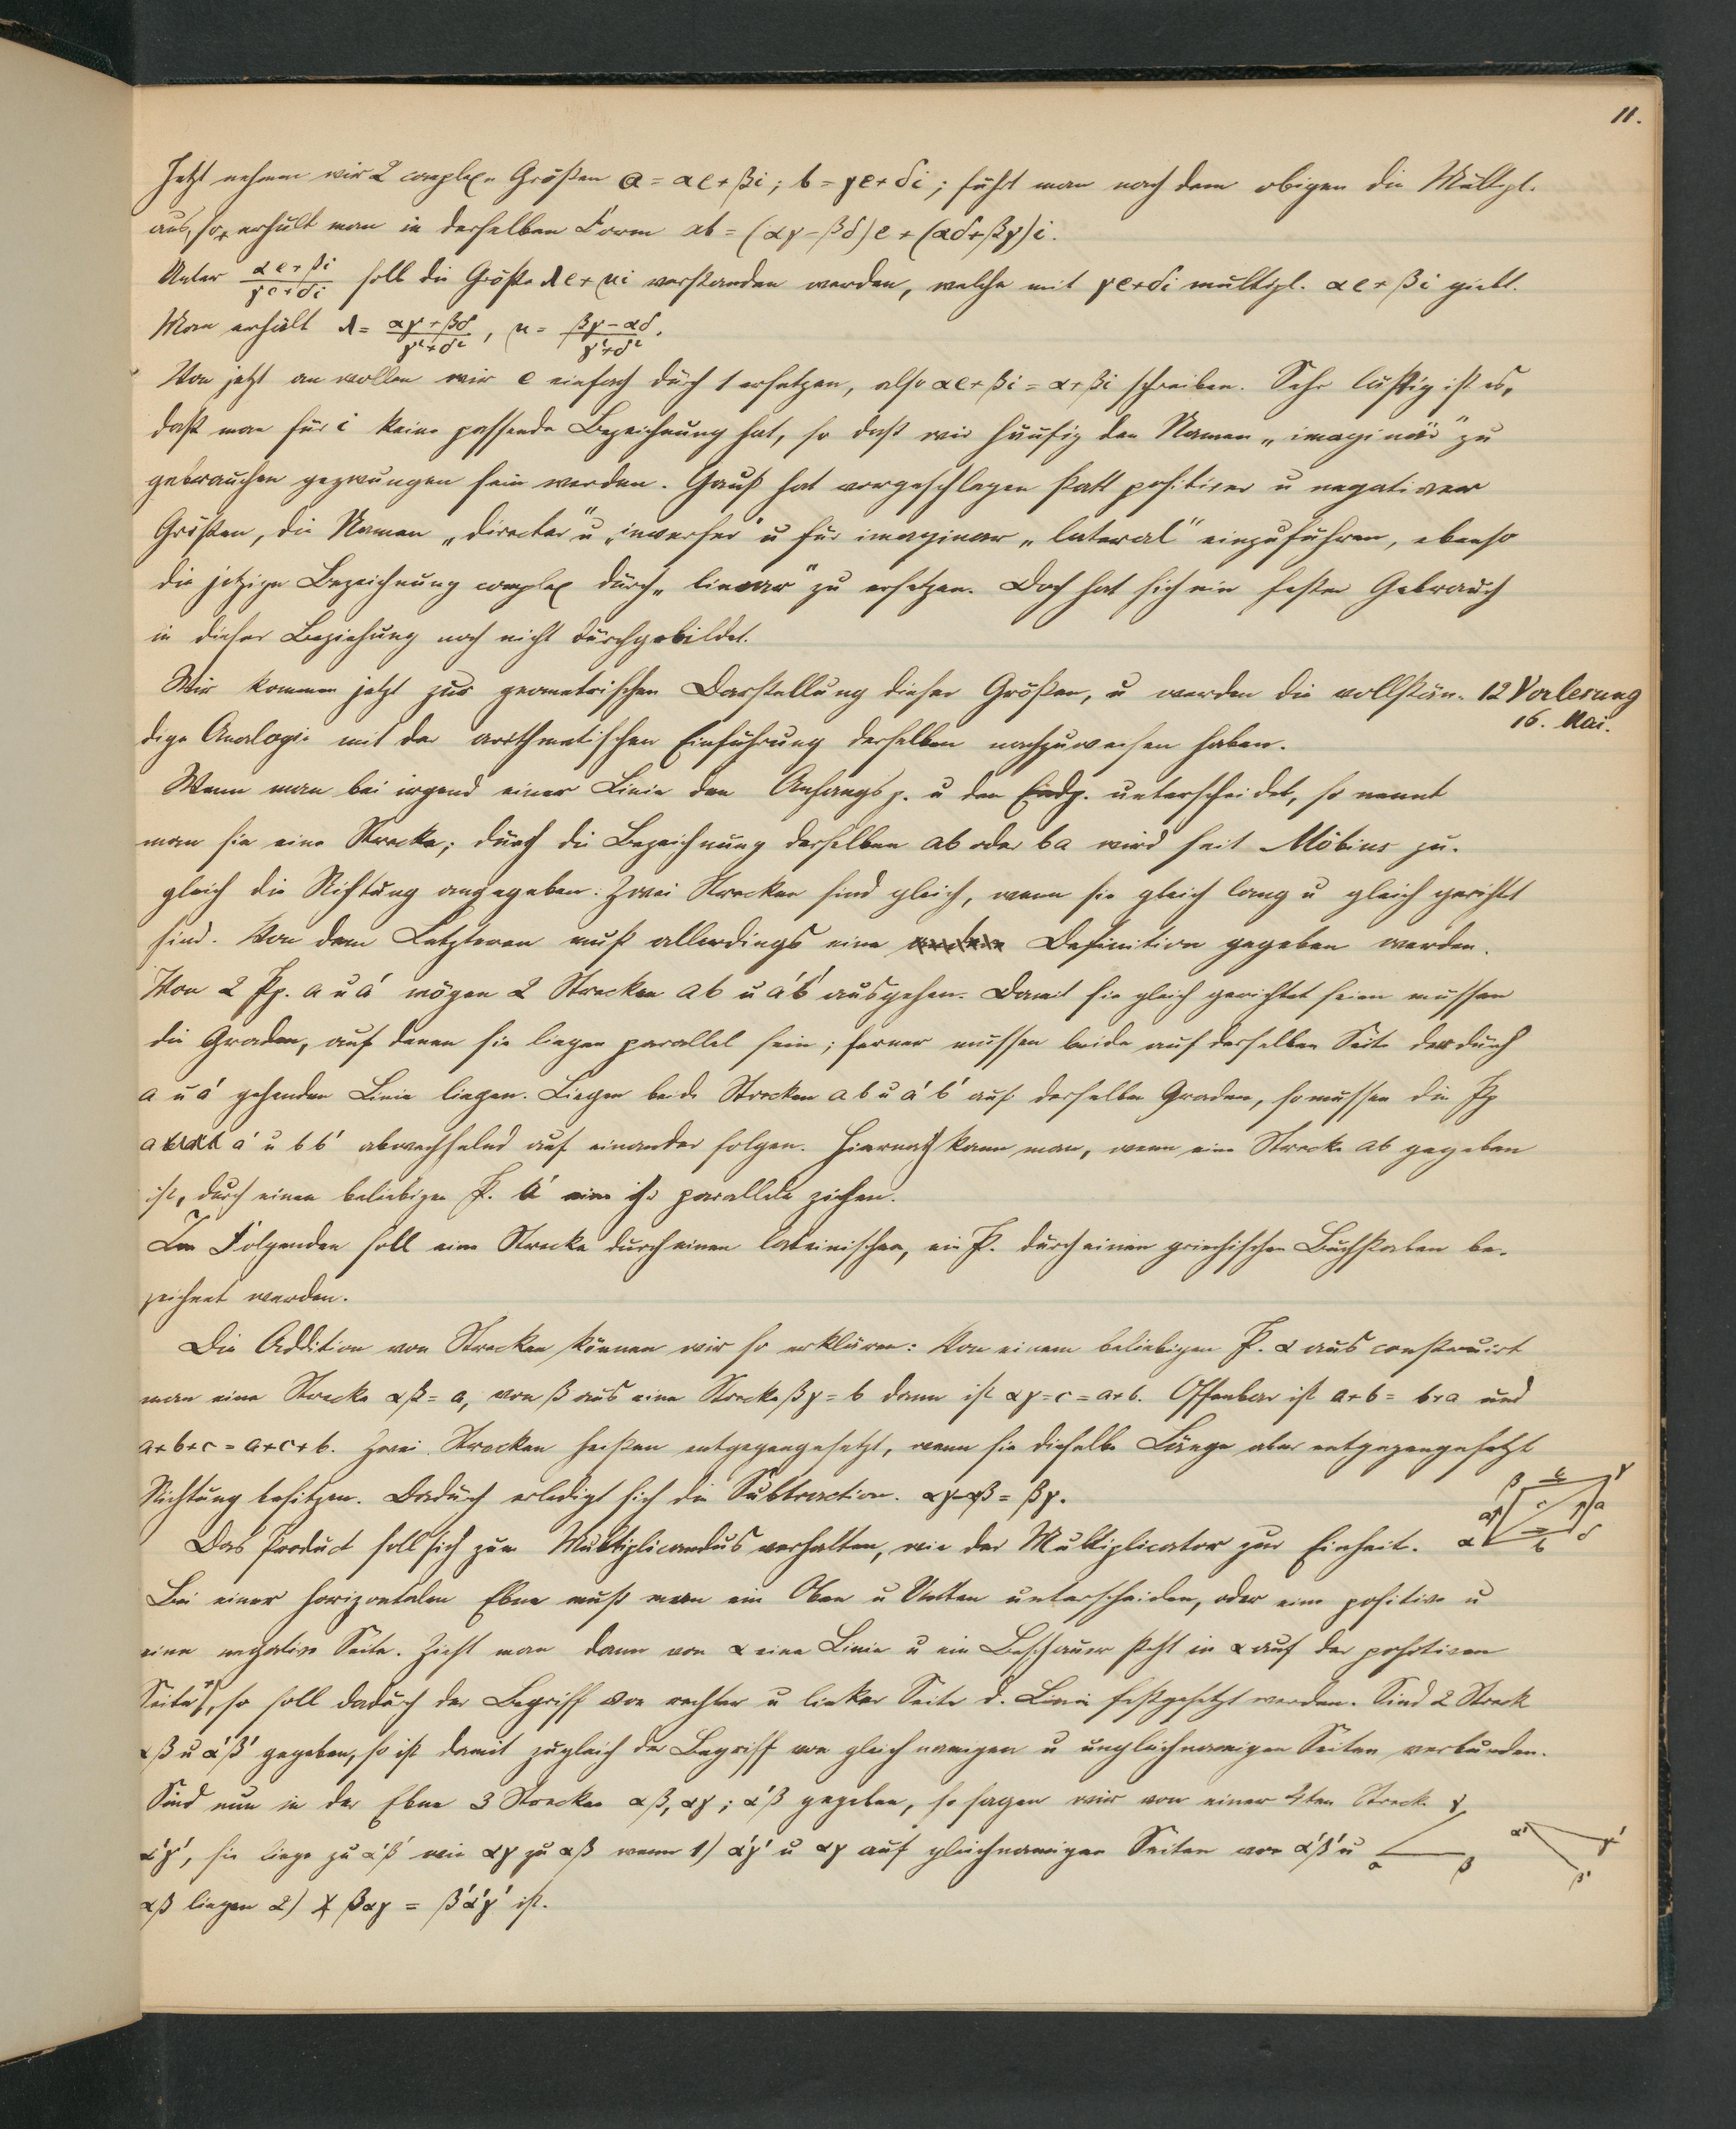 11.
Jetzt nehmen wir 2 complexe Größen a = αe + βi; b = γe + δi; führt man nach dem obigen die Multipl.
aus, so erhält man in derselben Form ab = (αγ – βδ)e + (αδ + βγ)i.
Unter (αe + βi)/(γe + δi) soll die Größe λe + μi verstanden werden, welche mit γe + δi multipl. αe + βi giebt.
Man erhält λ = (αγ + βδ)/(γ² + δ²), μ = (βγ – αδ)/(γ² + δ²).
Von jetzt an wollen wir e einfach durch 1 ersetzen, also αe + βi = α + βi schreiben. Sehr lästig ist es,
daß man für i keine passende Bezeichnung hat, so daß wir häufig den Namen „imaginär" zu
gebrauchen gezwungen sein werden. Gauß hat vorgeschlagen statt positiver u negativer
Größen, die Namen „directer" u „inverser" u für imaginar „lateral" einzuführen, ebenso
die jetzige Bezeichnung complex durch „linear" zu ersetzen. Doch hat sich ein fester Gebrauch
in dieser Beziehung noch nicht durchgebildet.
Wir kommen jetzt zur geometrischen Darstellung dieser Größen, u werden die vollstän-
12 Vorlesung
16. Mai.
dige Analogie mit der arithmetischen Einführung derselben nachzuweisen haben.
Wenn man bei irgend einer Linie den Anfangsp. u den Endp. unterscheidet, so nennt
man sie eine Strecke; durch die Bezeichnung derselben ab oder ba wird seit Möbius zu-
gleich die Richtung angegeben. Zwei Strecken sind gleich, wenn sie gleich lang u gleich gerichtet
sind. Von dem Letzteren muß allerdings eine Definition gegeben werden.
Von 2 Pp. a u a' mögen 2 Strecken ab u a'b' ausgehen. Damit sie gleich gerichtet seien müssen
die Graden, auf denen sie liegen parallel sein; ferner müssen beide auf derselben Seite der durch
a u a' gehenden Linie liegen. Liegen beide Strecken ab u a'b' auf derselben Graden, so müssen die Pp
a a' u b b' abwechselnd auf einander folgen. Hiernach kann man, wenn eine Strecke ab gegeben
ist, durch einen beliebigen P. a' eine ihr parallele ziehen.
Im Folgenden soll eine Strecke durch einen lateinischen, ein P. durch einen griechischen Buchstaben be-
zeichnet werden.
Die Addition von Strecken können wir so erklären: Von einem beliebigen P. α aus construirt
man eine Strecke αβ = a, von β aus eine Strecke βγ = b dann ist αγ = c = a + b. Offenbar ist a + b = b + a und
a + b + c = a + c + b. Zwei Strecken heißen entgegengesetzt, wenn sie dieselbe Länge aber entgegengesetzt
Richtung besitzen. Dadurch erledigt sich die Subtraction. αγ – αβ = βγ.
β b γ
a c a
α b δ
Das Product soll sich zum Multiplicandus verhalten, wie der Multiplicator zur Einheit.
Bei einer horizontalen Ebne muß man ein Oben u Unten unterscheiden, oder eine positive u
eine negative Seite. Zieht man dann von α eine Linie u ein Beschauer steht in α auf der positiven
Seite, so soll dadurch der Begriff von rechter u linker Seite d. Linie festgesetzt werden. Sind 2 Streck
αβ u α'β' gegeben, so ist damit zugleich der Begriff von gleichnamigen u ungleichnamigen Seiten verbunden.
Sind nun in der Ebne 3 Strecken αβ, αγ; α'β gegeben, so sagen wir von einer 4ten Streck
α'γ', sie liege zu α'β' wie αγ zu αβ wenn 1) α'γ' u αγ auf gleichnamigen Seiten von α'β' u
αβ liegen 2) ∢ βαγ = β'α'γ' ist.
γ
α β
α' γ'
β'